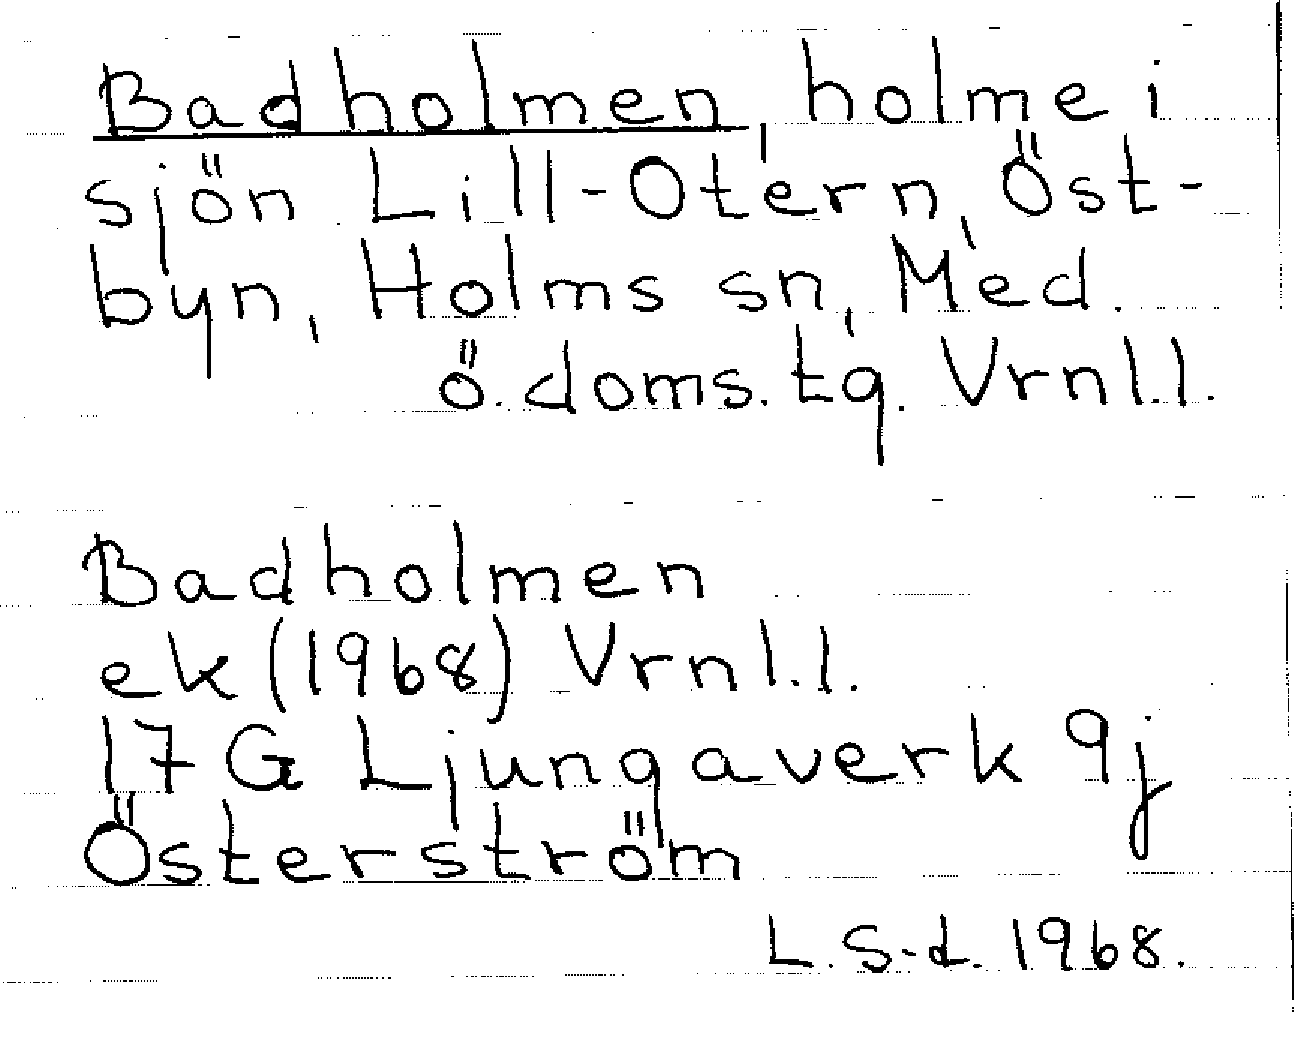 Badholmen, holme i
sjön Lill-Otern, Öst-
byn, Holms sn, Med.
ö. doms. tg. Vrnl.l.
Badholmen
ek (1968) Vrnl.l.
17 G Ljungaverk 9j
Österström
L. S-d. 1968.